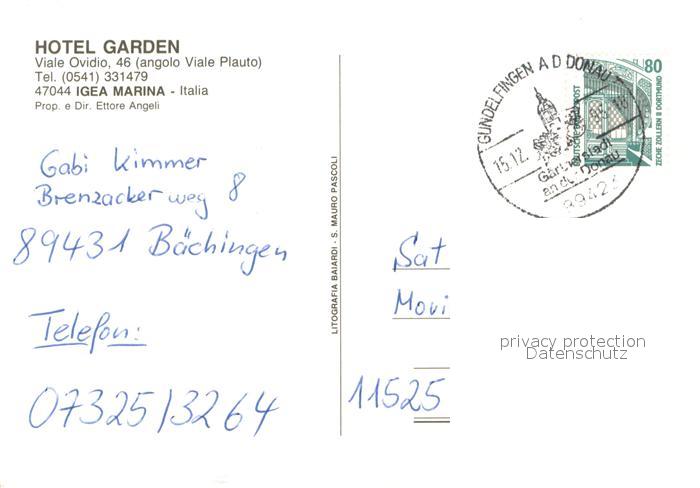 HOTEL GARDEN
Viale Ovidio, 46 (angolo Viale Plauto)
Tel. (0541) 331479
47044 IGEA MARINA - Italia
Prop. e Dir. Ettore Angeli
Gabi Kimmer
Brenzackerweg 8
89431 Bächingen
Telefon:
07325/3264
LITOGRAFIA BAIARDI - S. MAURO PASCOLI
GUNDELFINGEN A D DONAU
15.12.
Gärtnerstadt
an der Donau
89423
80
DEUTSCHE BUNDESPOST
ZECHE ZOLLERN II DORTMUND
Sat
Movi
11525
privacy protection
Datenschutz